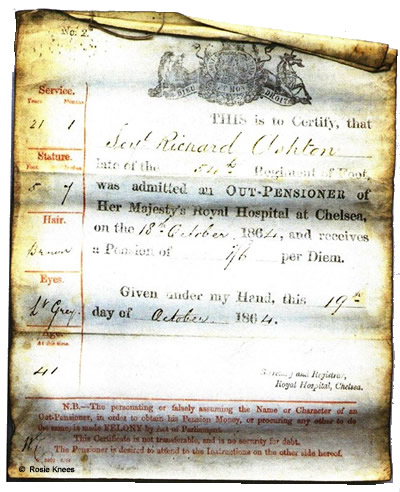 No. 2.
DIEU ET MON DROIT
Service.
Years Months
21 1
Stature.
Feet Inches
5 7
Hair.
Brown
Eyes.
Lt Grey
Age.
At this date.
41
THIS is to Certify, that
Serjt Richard Ashton
late of the 54th Regiment of Foot,
was admitted an OUT-PENSIONER of
Her Majesty's Royal Hospital at Chelsea,
on the 18th October 1864, and receives
a Pension of 1/6 per Diem.
Given under my Hand, this 19th
day of October 1864.
Secretary and Registrar,
Royal Hospital, Chelsea.
N.B.—The personating or falsely assuming the Name or Character of an
Out-Pensioner, in order to obtain his Pension Money, or procuring any other to do
the same, is made FELONY by Act of Parliament.
This Certificate is not transferable, and is no security for debt.
The Pensioner is desired to attend to the Instructions on the other side hereof.
© Rosie Knees